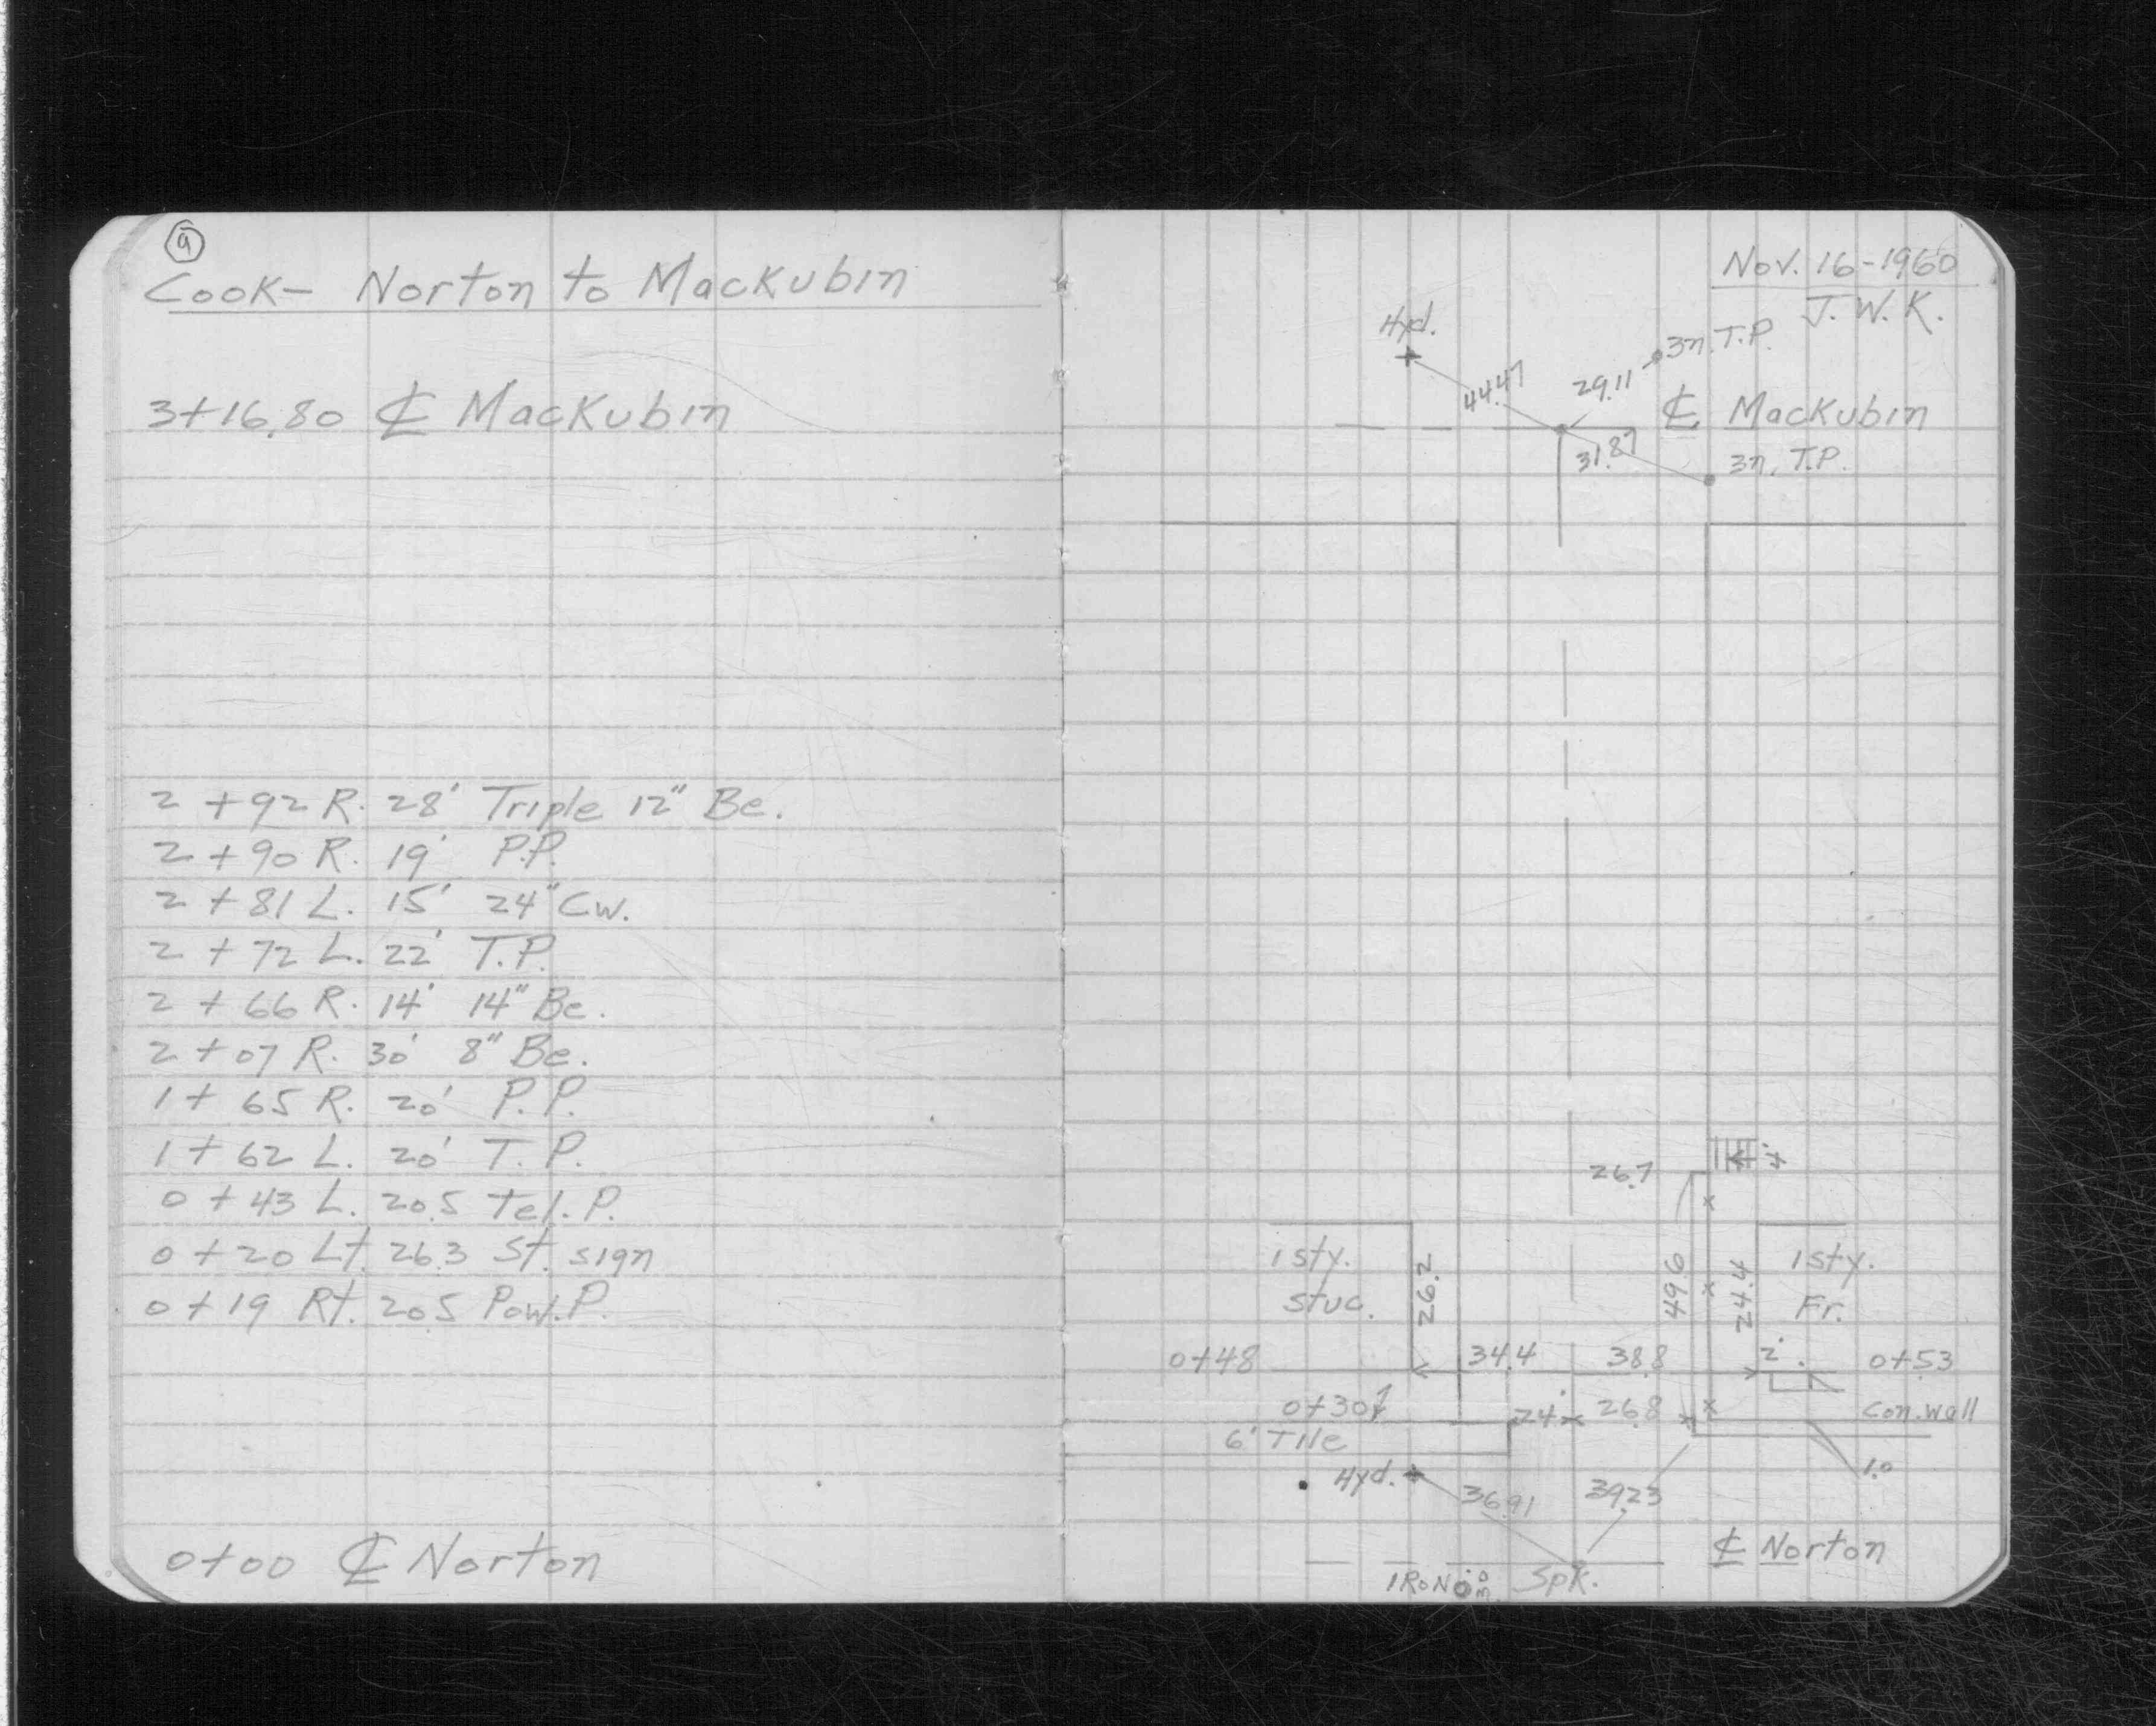 9
Cook- Norton to Mackubin
3+16.80 ℄ Mackubin
2 +92 R. 28' Triple 12" Be.
2 +90 R. 19' P.P.
2 +81 L. 15' 24" Cw.
2 +72 L. 22' T.P.
2 +66 R. 14' 14" Be.
2 +07 R. 30' 8" Be.
1+ 65 R. 20' P.P.
1+ 62 L. 20' T.P.
0 +43 L. 20.5 Tel. P.
0 +20 Lt. 26.3 St. sign
0 +19 Rt. 20.5 Pow. P.
0+00 ℄ Norton
Nov. 16-1960
J.W.K.
Hyd.
3n. T.P.
44.47
29.11
℄ Mackubin
31.87
3n. T.P.
26.7
1 sty.
Stuc.
26.2
49.6
24.4
1 sty.
Fr.
0+48
34.4
38.8
2'
0+53
0+30
24
26.8
Con. wall
6' Tile
Hyd.
36.91
39.23
1.0
℄ Norton
IRON
Spk.